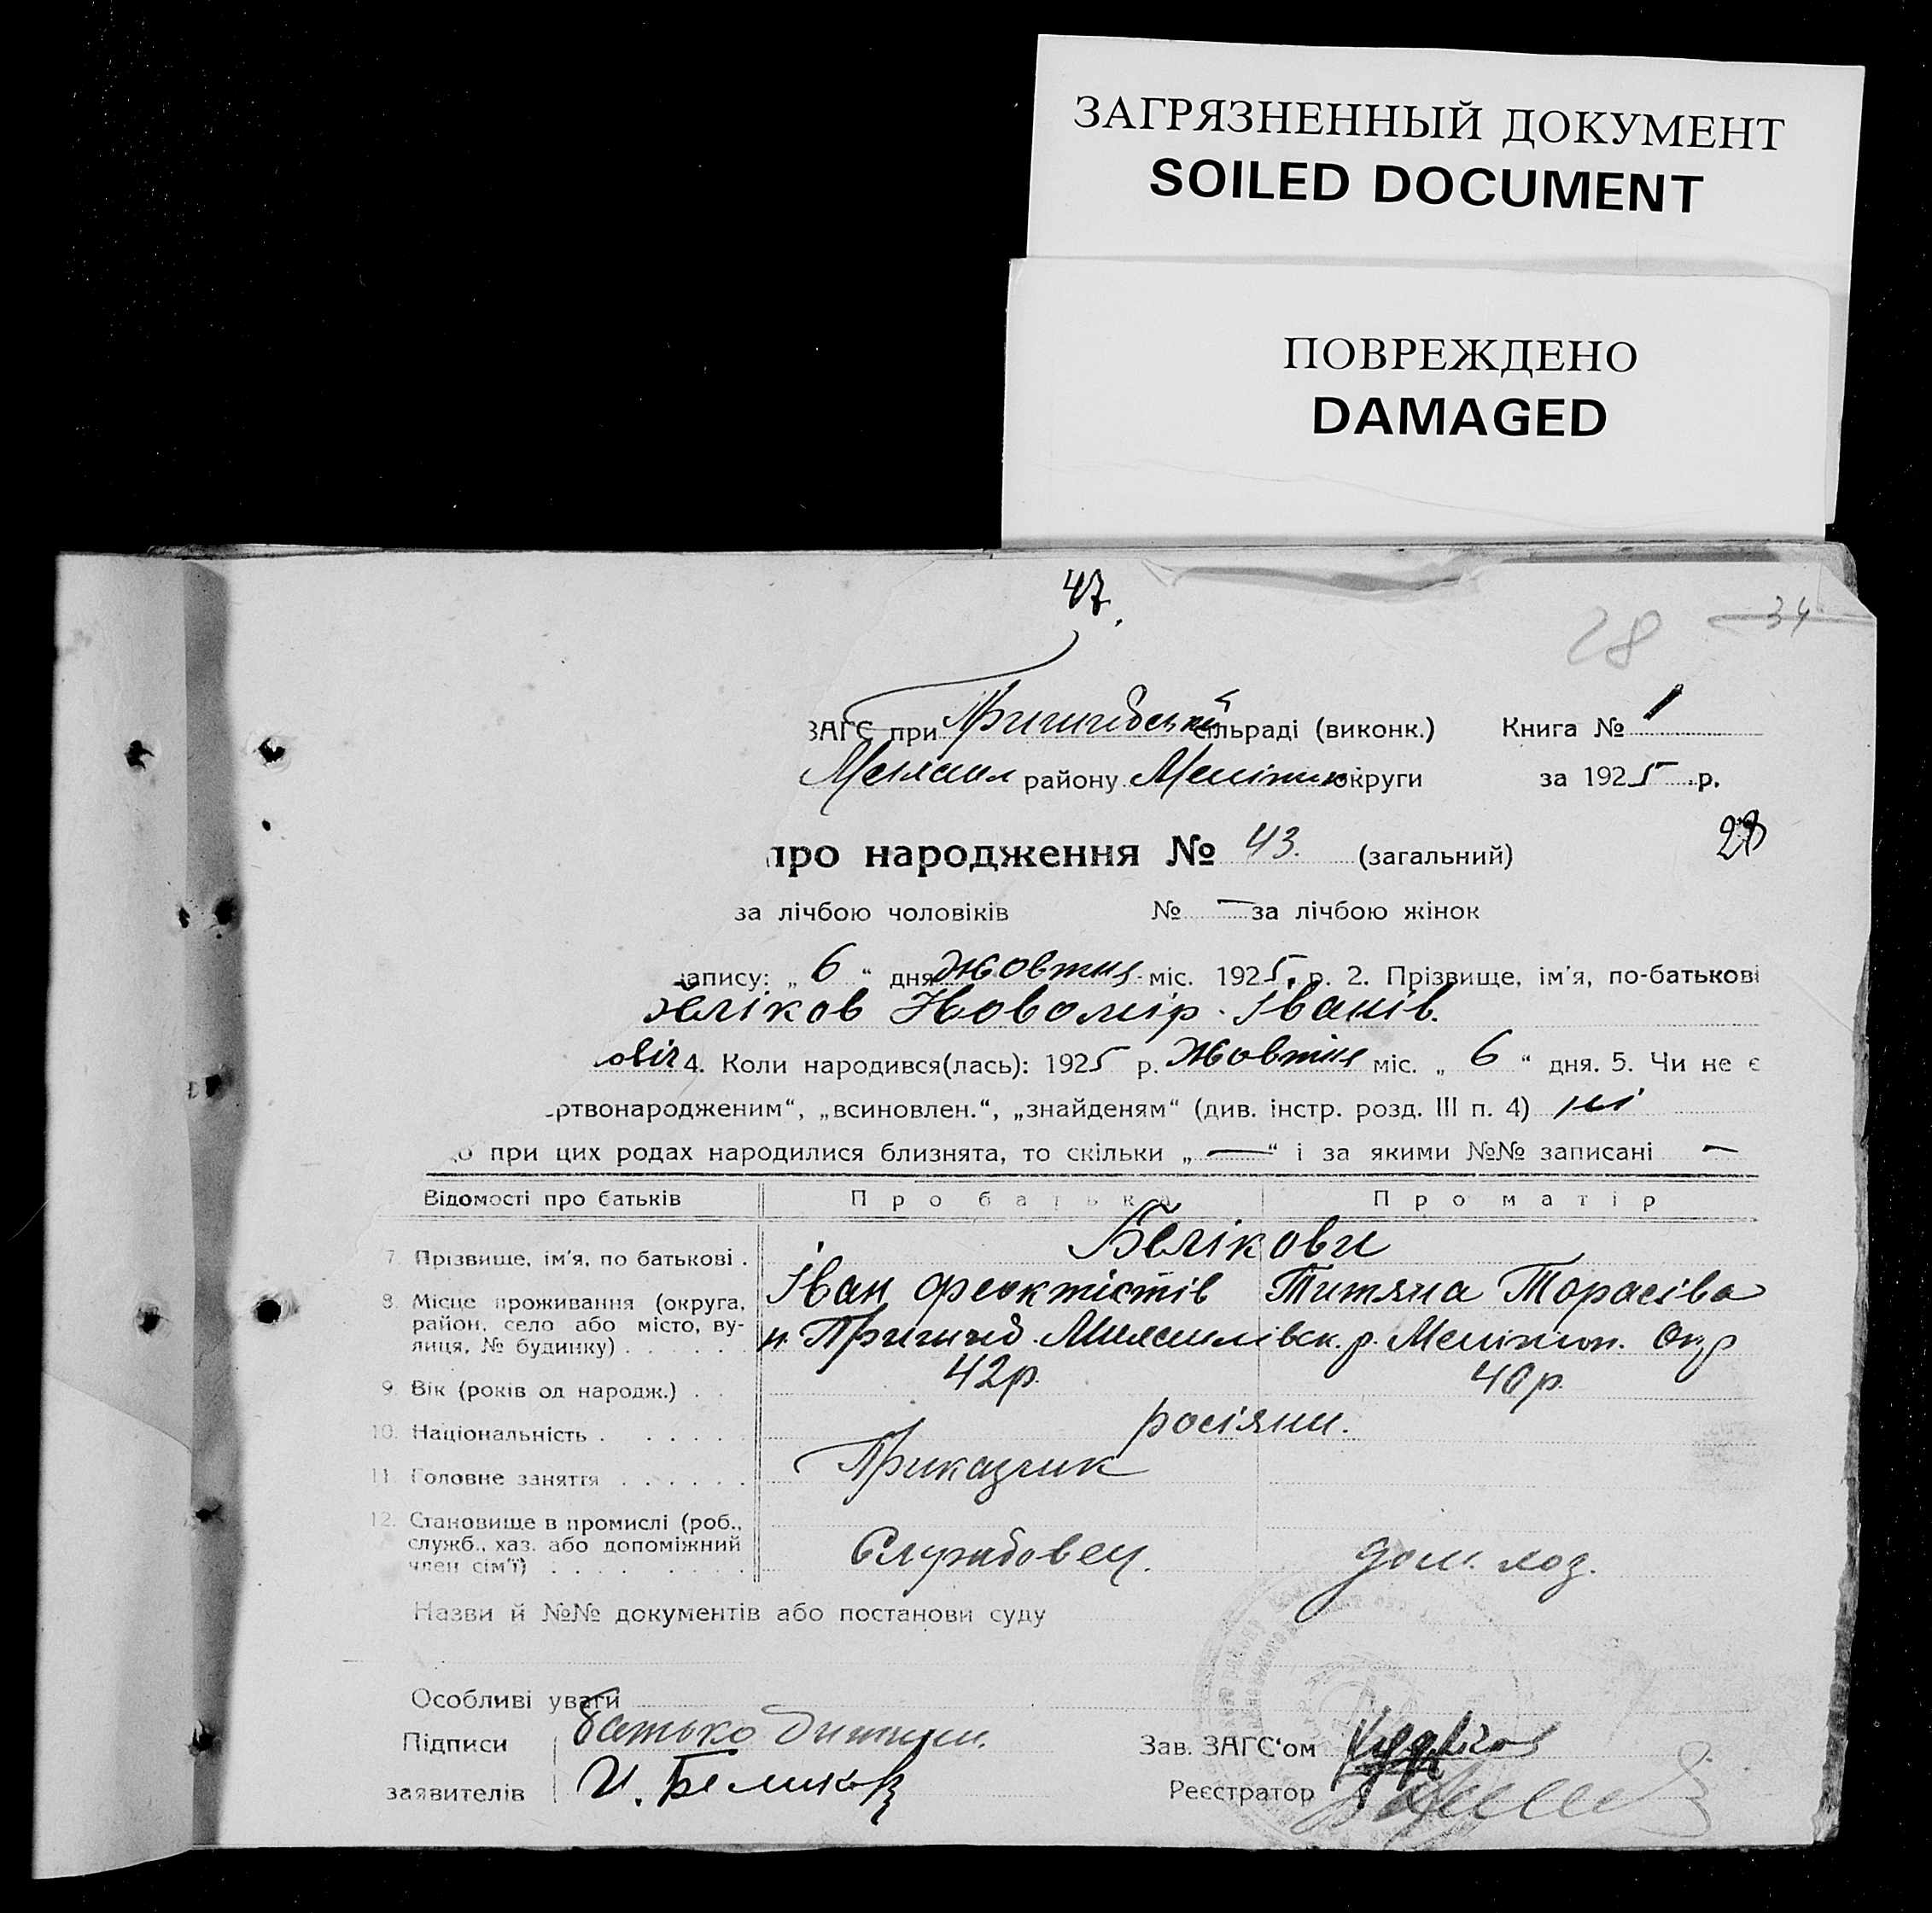 ЗАГРЯЗНЕННЫЙ ДОКУМЕНТ
SOILED DOCUMENT
ПОВРЕЖДЕНО
DAMAGED
47.
28 34
ЗАГС при Пришибській сільраді (виконк.) Книга № 1
району Меліт округи за 1925 р.
про народження № 43. (загальний) 28
за лічбою чоловіків № — за лічбою жінок
запису: „ 6 “ дня Жовтня міс. 1925 р. 2. Прізвище, ім'я, по-батькові
еліков Новомір Іванів.
овіч 4. Коли народився(лась): 1925 р. Жовтня міс. „ 6 “ дня. 5. Чи не є
ртвонародженим“, „всиновлен.“, „знайденям“ (див. інстр. розд. III п. 4) ні
о при цих родах народилися близнята, то скільки „ — “ і за якими №№ записані —
Відомості про батьків Про батька Про матір
Бєлікови
7. Прізвище, ім'я, по батькові . Іван Феоктістів Титяна Торасіва
8. Місце проживання (округа, район, село або місто, вулиця, № будинку) . . . . . . Пришиб р. Меліт Окр
9. Вік (років од народж.) . . 42р. 40р.
10. Національність . . . . . . росіяни.
11. Головне заняття . . . . . . Приказчик
12. Становище в промислі (роб., служб., хаз. або допоміжний член сім'ї) . . . . Службовец. дом. хоз.
Назви й №№ документів або постанови суду
Особливі уваги
Підписи батько дитини.
заявителів И. Беликов
Зав. ЗАГС'ом
Реєстратор